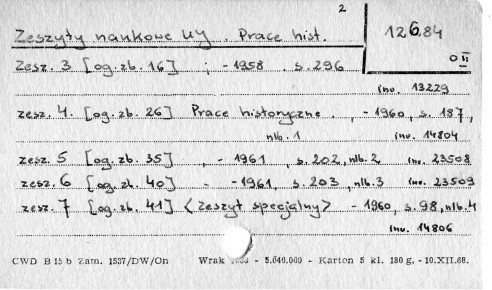 2
Zeszyty naukowe UJ. Prace hist.
12684
O II
Zesz. 3 [og. zb. 16] ; - 1958 s. 296
inv. 13229
zesz. 4. [og. zb. 26] Prace historyczne. , - 1960, s. 187,
nlb. 1 inv. 14804
zesz. 5 [og. zb. 35] , - 1961 , s. 202, nlb. 2 inv. 23508
zesz. 6 [og. zb. 40] - - 1961, s. 203, nlb. 3 inv. 23509
zesz. 7 [og. zb. 41] <Zeszyt specjalny> - 1960, s. 98, nlb. 4
inv. 14806
CWD B 15 b Zam. 1537/DW/On Wrak - 5.040.000 - Karton 5 kl. 180 g. - 10.XII.68.